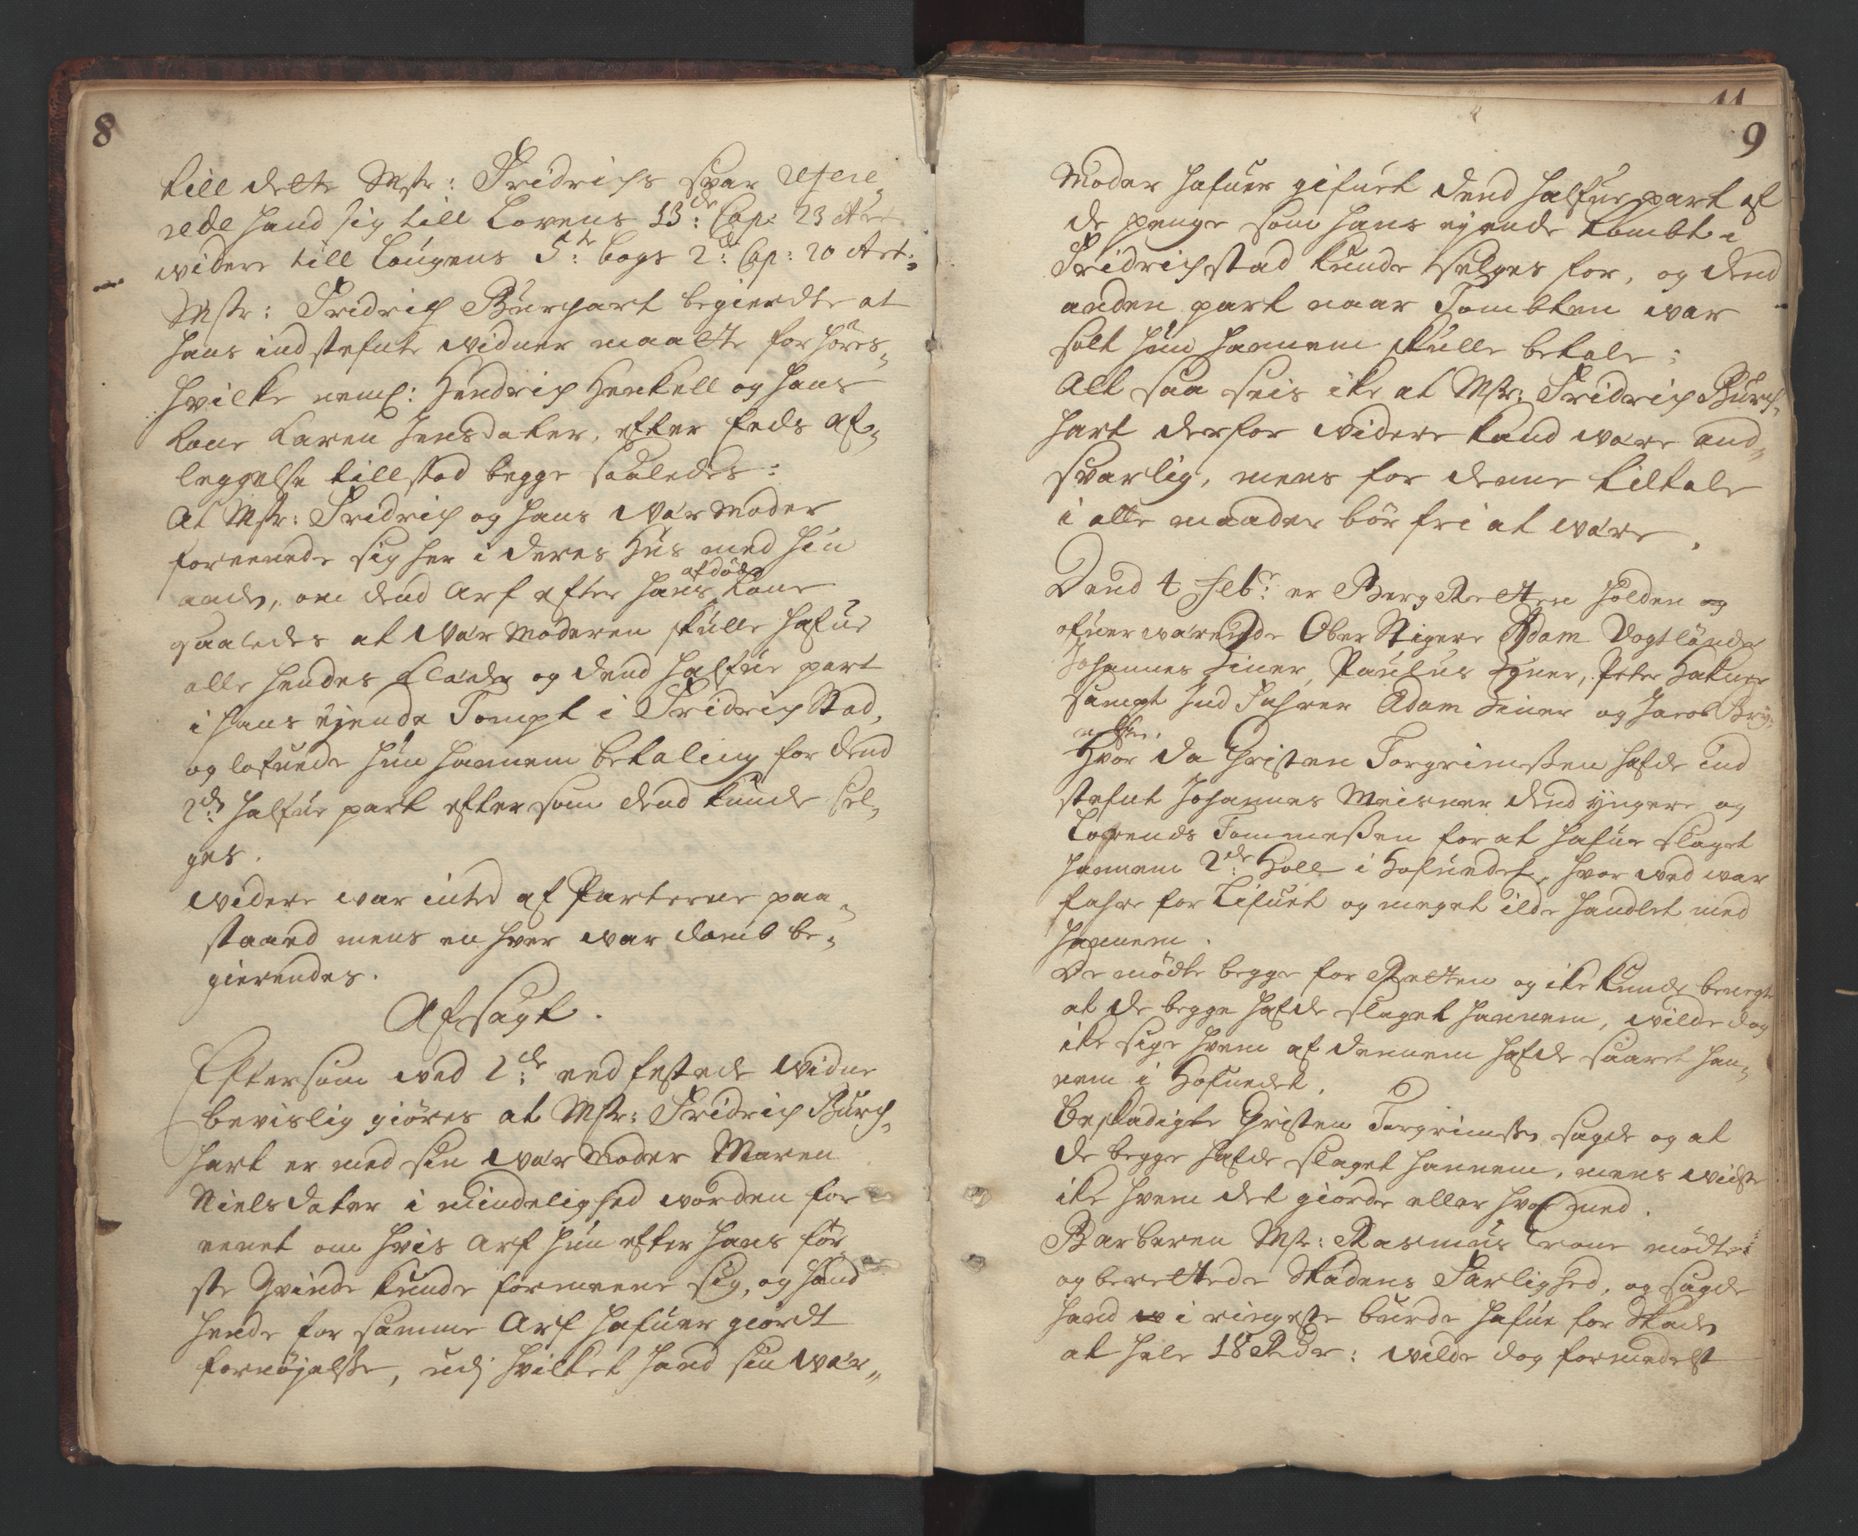 8
till dette Mstr: Fridrichs svar refere„
rede hand sig till Lovens 13de: Cap: 23 Art:
widere till Lougens 5te: bogs 2de: Cap: 20 Art:
Mstr: Fridrich Bürchart begierdte at
hans indstefnte widner maatte forhøres„
hvilke neml: Hendrich Henkell og hans
Kone Karen Jensdater, efter Eeds af„
leggelse tillstod begge saaledes:
At Mstr: Fridrich og hans Wær Moder
foreenede sig her i deres Hus med hin
anden, om dend Arf efter hans afdøde Kone
saaledes at Wær Moderen skulle hafue
alle hendes Klæder og dend halfue part
i hans eiende Tompt i Fridrich Stad,
og lofuede hun hannem betaling for dend
2den halfue part eftersom dend kunde sel„
ges.
widere war inted af Parterne paa„
staaed mens en hver war domb be„
gierendes.
Afsagt.
Eftersom wed 2de: eedfestede widne
bevislig giøres at Mstr: Fridrich Bürch„
hart er med sin Wær Moder Maren
Nielsdater i Mindelighed worden for
eenet om hvis Arf hun efter hans før
ste Qvinde kunde formeene sig, og hand
hende for samme Arf hafuer giordt
fornøjelse, udj hvilket hand sin Wær„
11
9
Moder hafuer gifuet dend halfue part af
de penge som hans ejende Tombt i
Fridrichstad kunde selges for, og dend
anden part naar Tombten war
solt hun hannem skulle betale:
Alt saa seis ike at Mstr: Fridrich Bürch„
hart derfor widere kand wære and„
svarlig, mens for denne tiltale
i alle maader bør fri at wære.
Dend 4 Febr: er Berg Retten holden og
ofuerwærende Ober Stigere Adam Vogtlænder
Johannes Ziener, Paulus Zyner, Peter Hatner
sampt Indfahrer Adam Ziener og Jacob Bry„
nilsen.
Hvor da Christen Torgrimßen hafde ind
stefnt Johannes Meisner dend yngere og
Lorends Tommeßen for at hafue slaget
hannem 2de: Holl i Hofuedet, hvor wed war
fahre for Lifuet og meget ilde handlet med
hannem.
De mødte begge for Retten og ike kunde benegte
at de begge hafde slaget hannem, wilde dog
ike sige hvem af dennem hafde saaret han„
nem i Hofuedet.
Beskadigte Christen Torgrimsen sagde og at
de begge hafde slaget hannem, mens widste
ike hvem det giorde eller hvormed.
Barberen Mstr: Rasmus Trane mødte
og berettede Skadens Farlighed, og sagde
hand i ringeste burde hafue for Skaden
at hele 18 Rdr: wilde dog formedelst